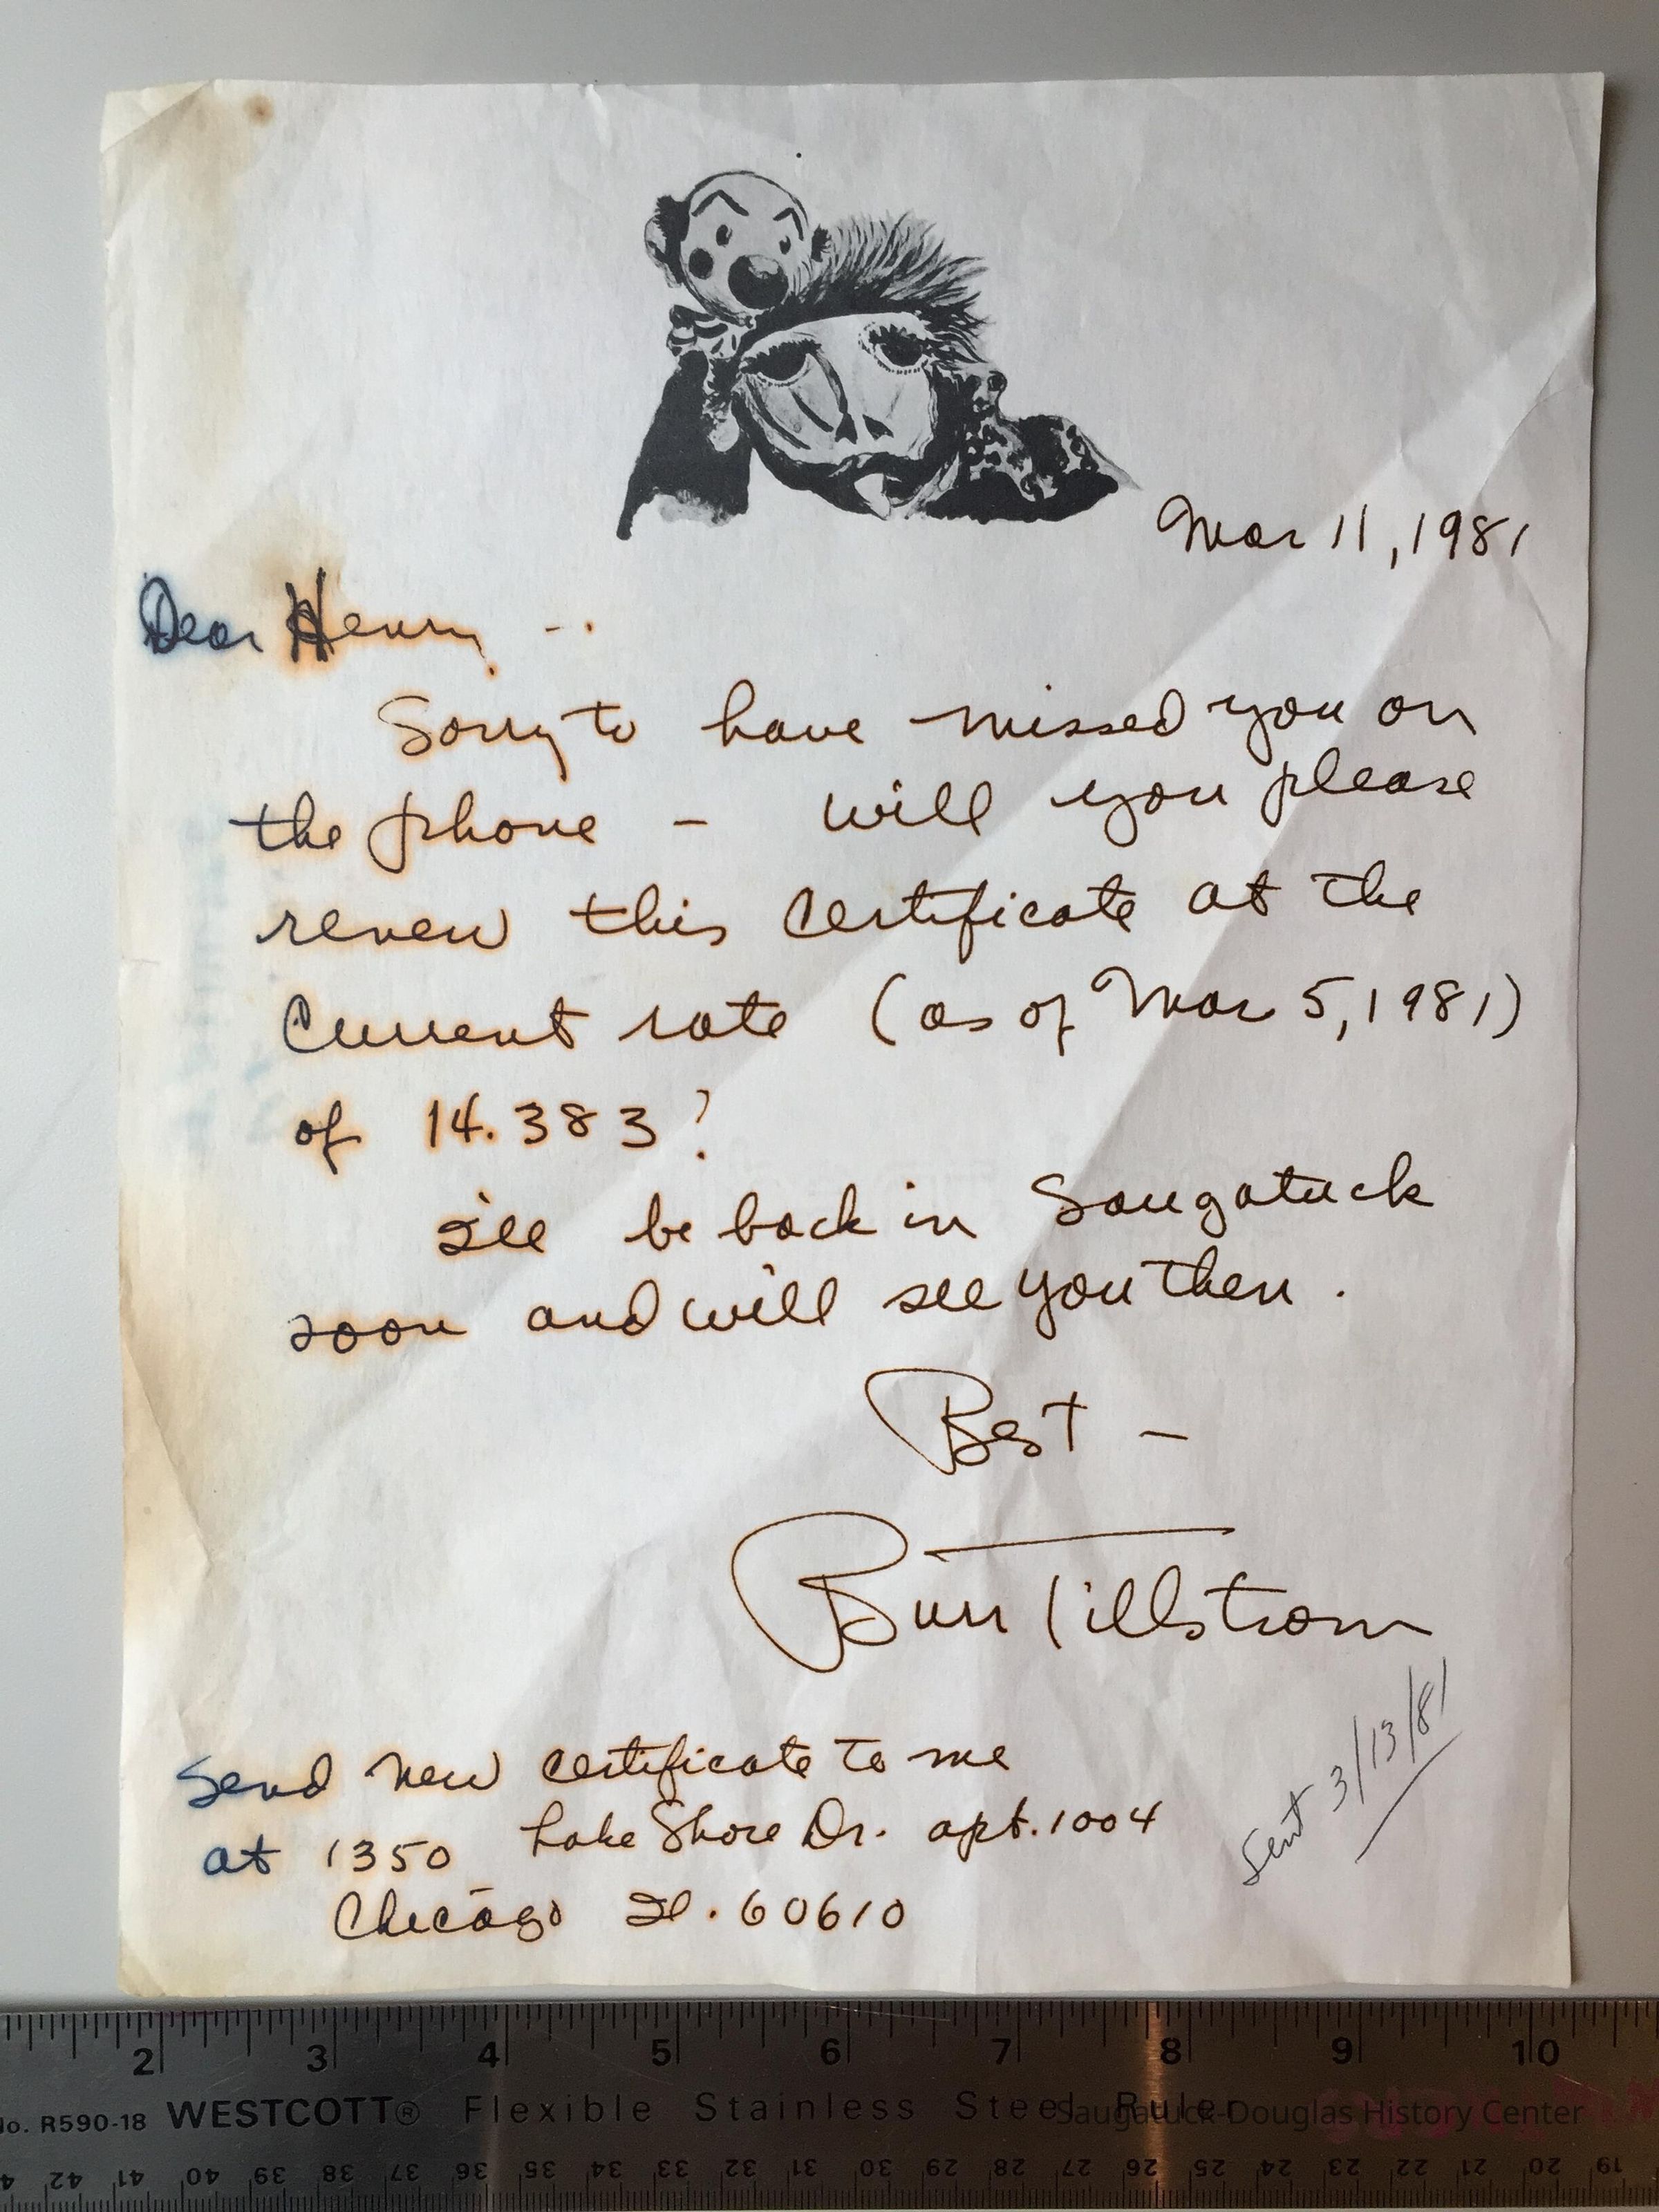 Mar 11, 1981
Dear Henry --
Sorry to have missed you on
the phone - will you please
renew this certificate at the
Current rate (as of Mar 5, 1981)
of 14.383?
I'll be back in Saugatuck
soon and will see you then.
Best -
Burr Tillstrom
Send new certificate to me
at 1350 Lake Shore Dr. apt. 1004
Chicago Il. 60610
Sent 3/13/81
2 3 4 5 6 7 8 9 10
No. R590-18 WESTCOTT® Flexible Stainless Steel Ruler
Saugatuck-Douglas History Center
42 41 40 39 38 37 36 35 34 33 32 31 30 29 28 27 26 25 24 23 22 21 20 19